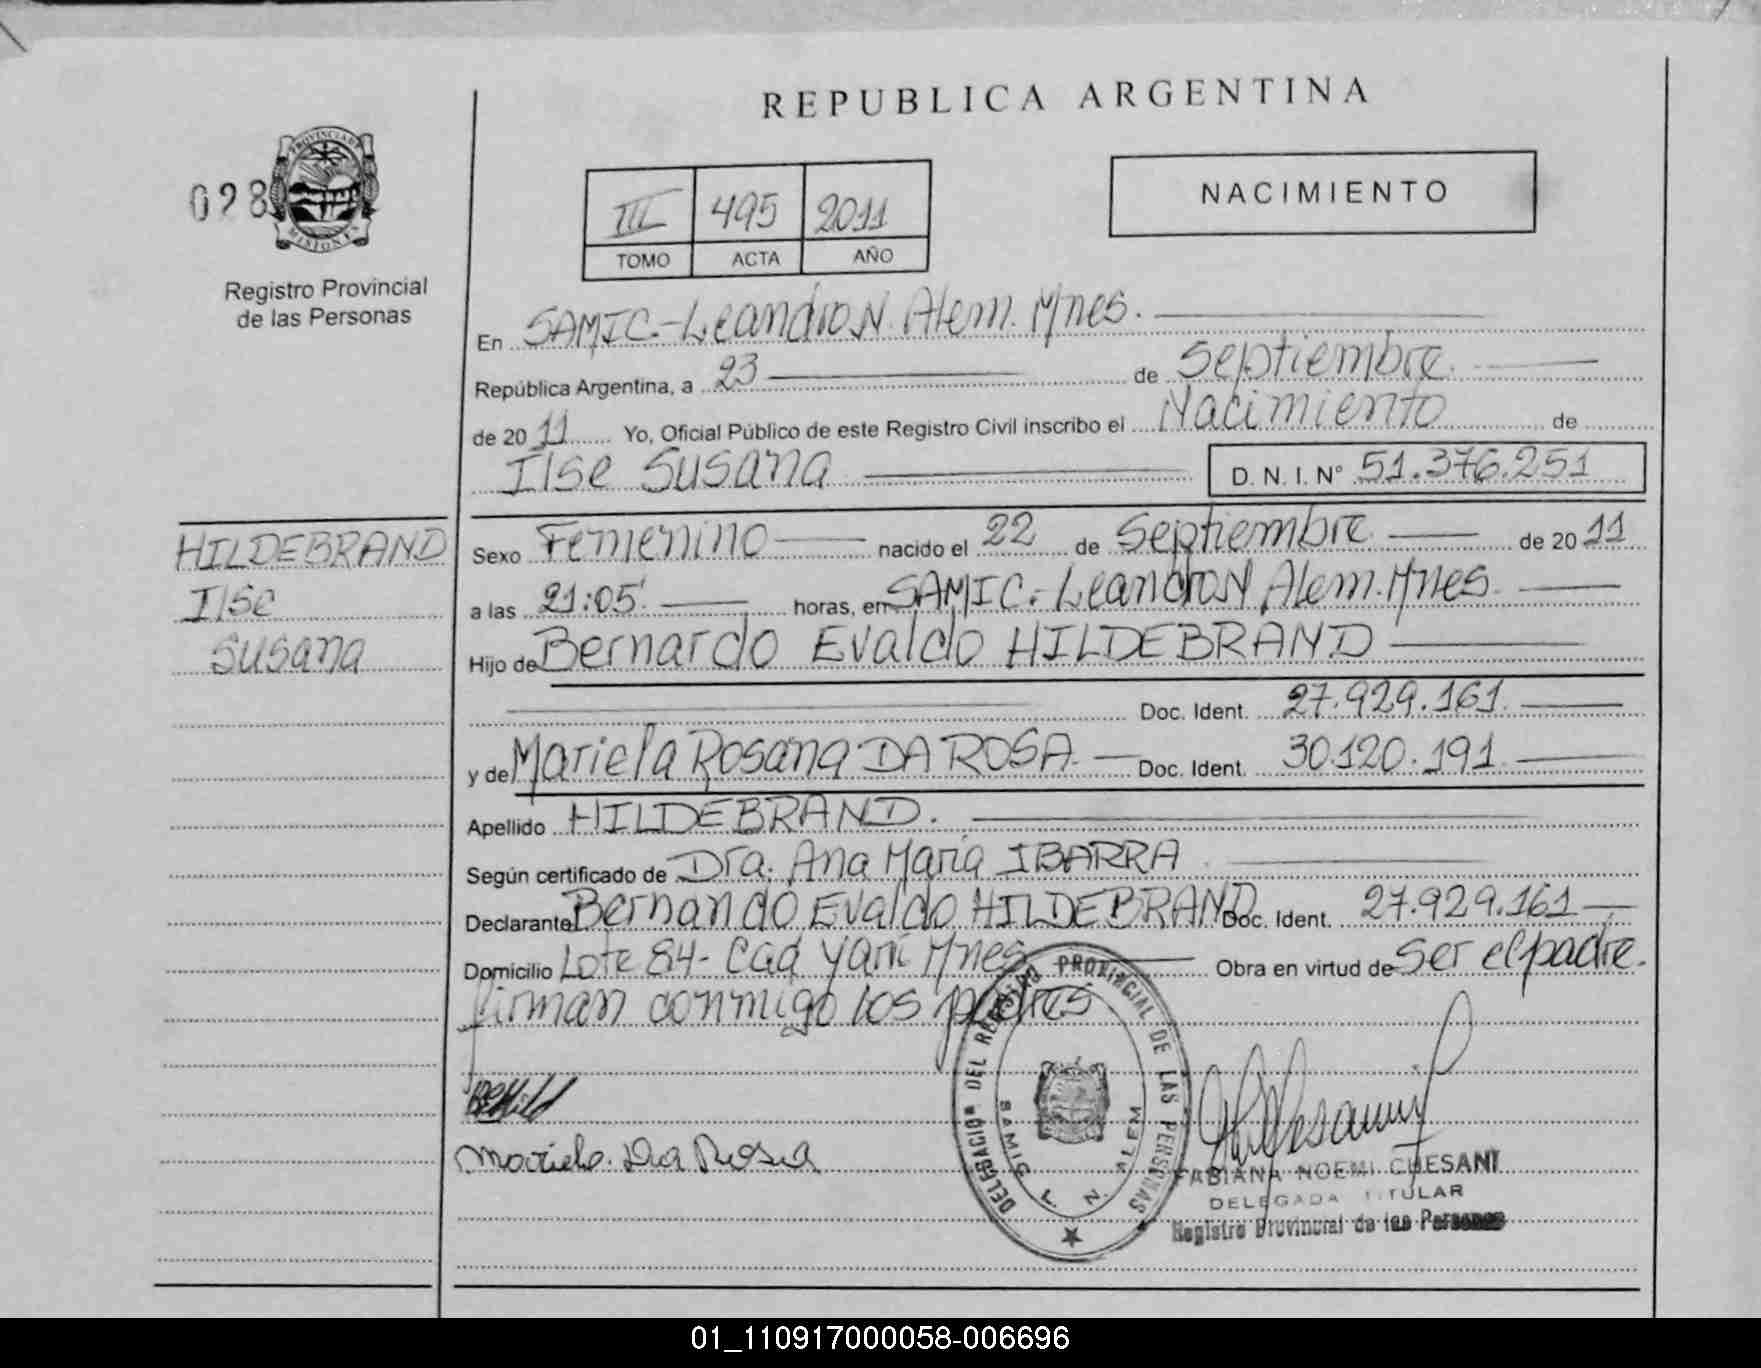 REPUBLICA ARGENTINA
PROVINCIA DE
MISIONES
028
Registro Provincial
de las Personas
III 495 2011
TOMO ACTA AÑO
NACIMIENTO
En SAMIC.-Leandro N. Alem. Mnes.
República Argentina, a 23 de Septiembre
de 2011 Yo, Oficial Público de este Registro Civil inscribo el Nacimiento de
Ilse Susana D. N. I. N° 51.376.251
HILDEBRAND
Ilse
Susana
Sexo Femenino nacido el 22 de Septiembre de 2011
a las 21:05' horas, en SAMIC.-Leandro N Alem. Mnes.
Hijo de Bernardo Evaldo HILDEBRAND
Doc. Ident. 27.929.161.
y de Mariela Rosana DA ROSA. Doc. Ident. 30.120.191
Apellido HILDEBRAND.
Según certificado de Dra. Ana María IBARRA
Declarante Bernando Evaldo HILDEBRAND Doc. Ident. 27.929.161
Domicilio Lote 84- Caá Yarí Mnes Obra en virtud de Ser el padre.
firman conmigo los padres
Mariela Da Rosa
DELEGACION DEL REGISTRO PROVINCIAL DE LAS PERSONAS
SAMIC L. N. ALEM
FABIANA NOEMI CHESANI
DELEGADA TITULAR
Registro Provincial de las Personas
01_110917000058-006696